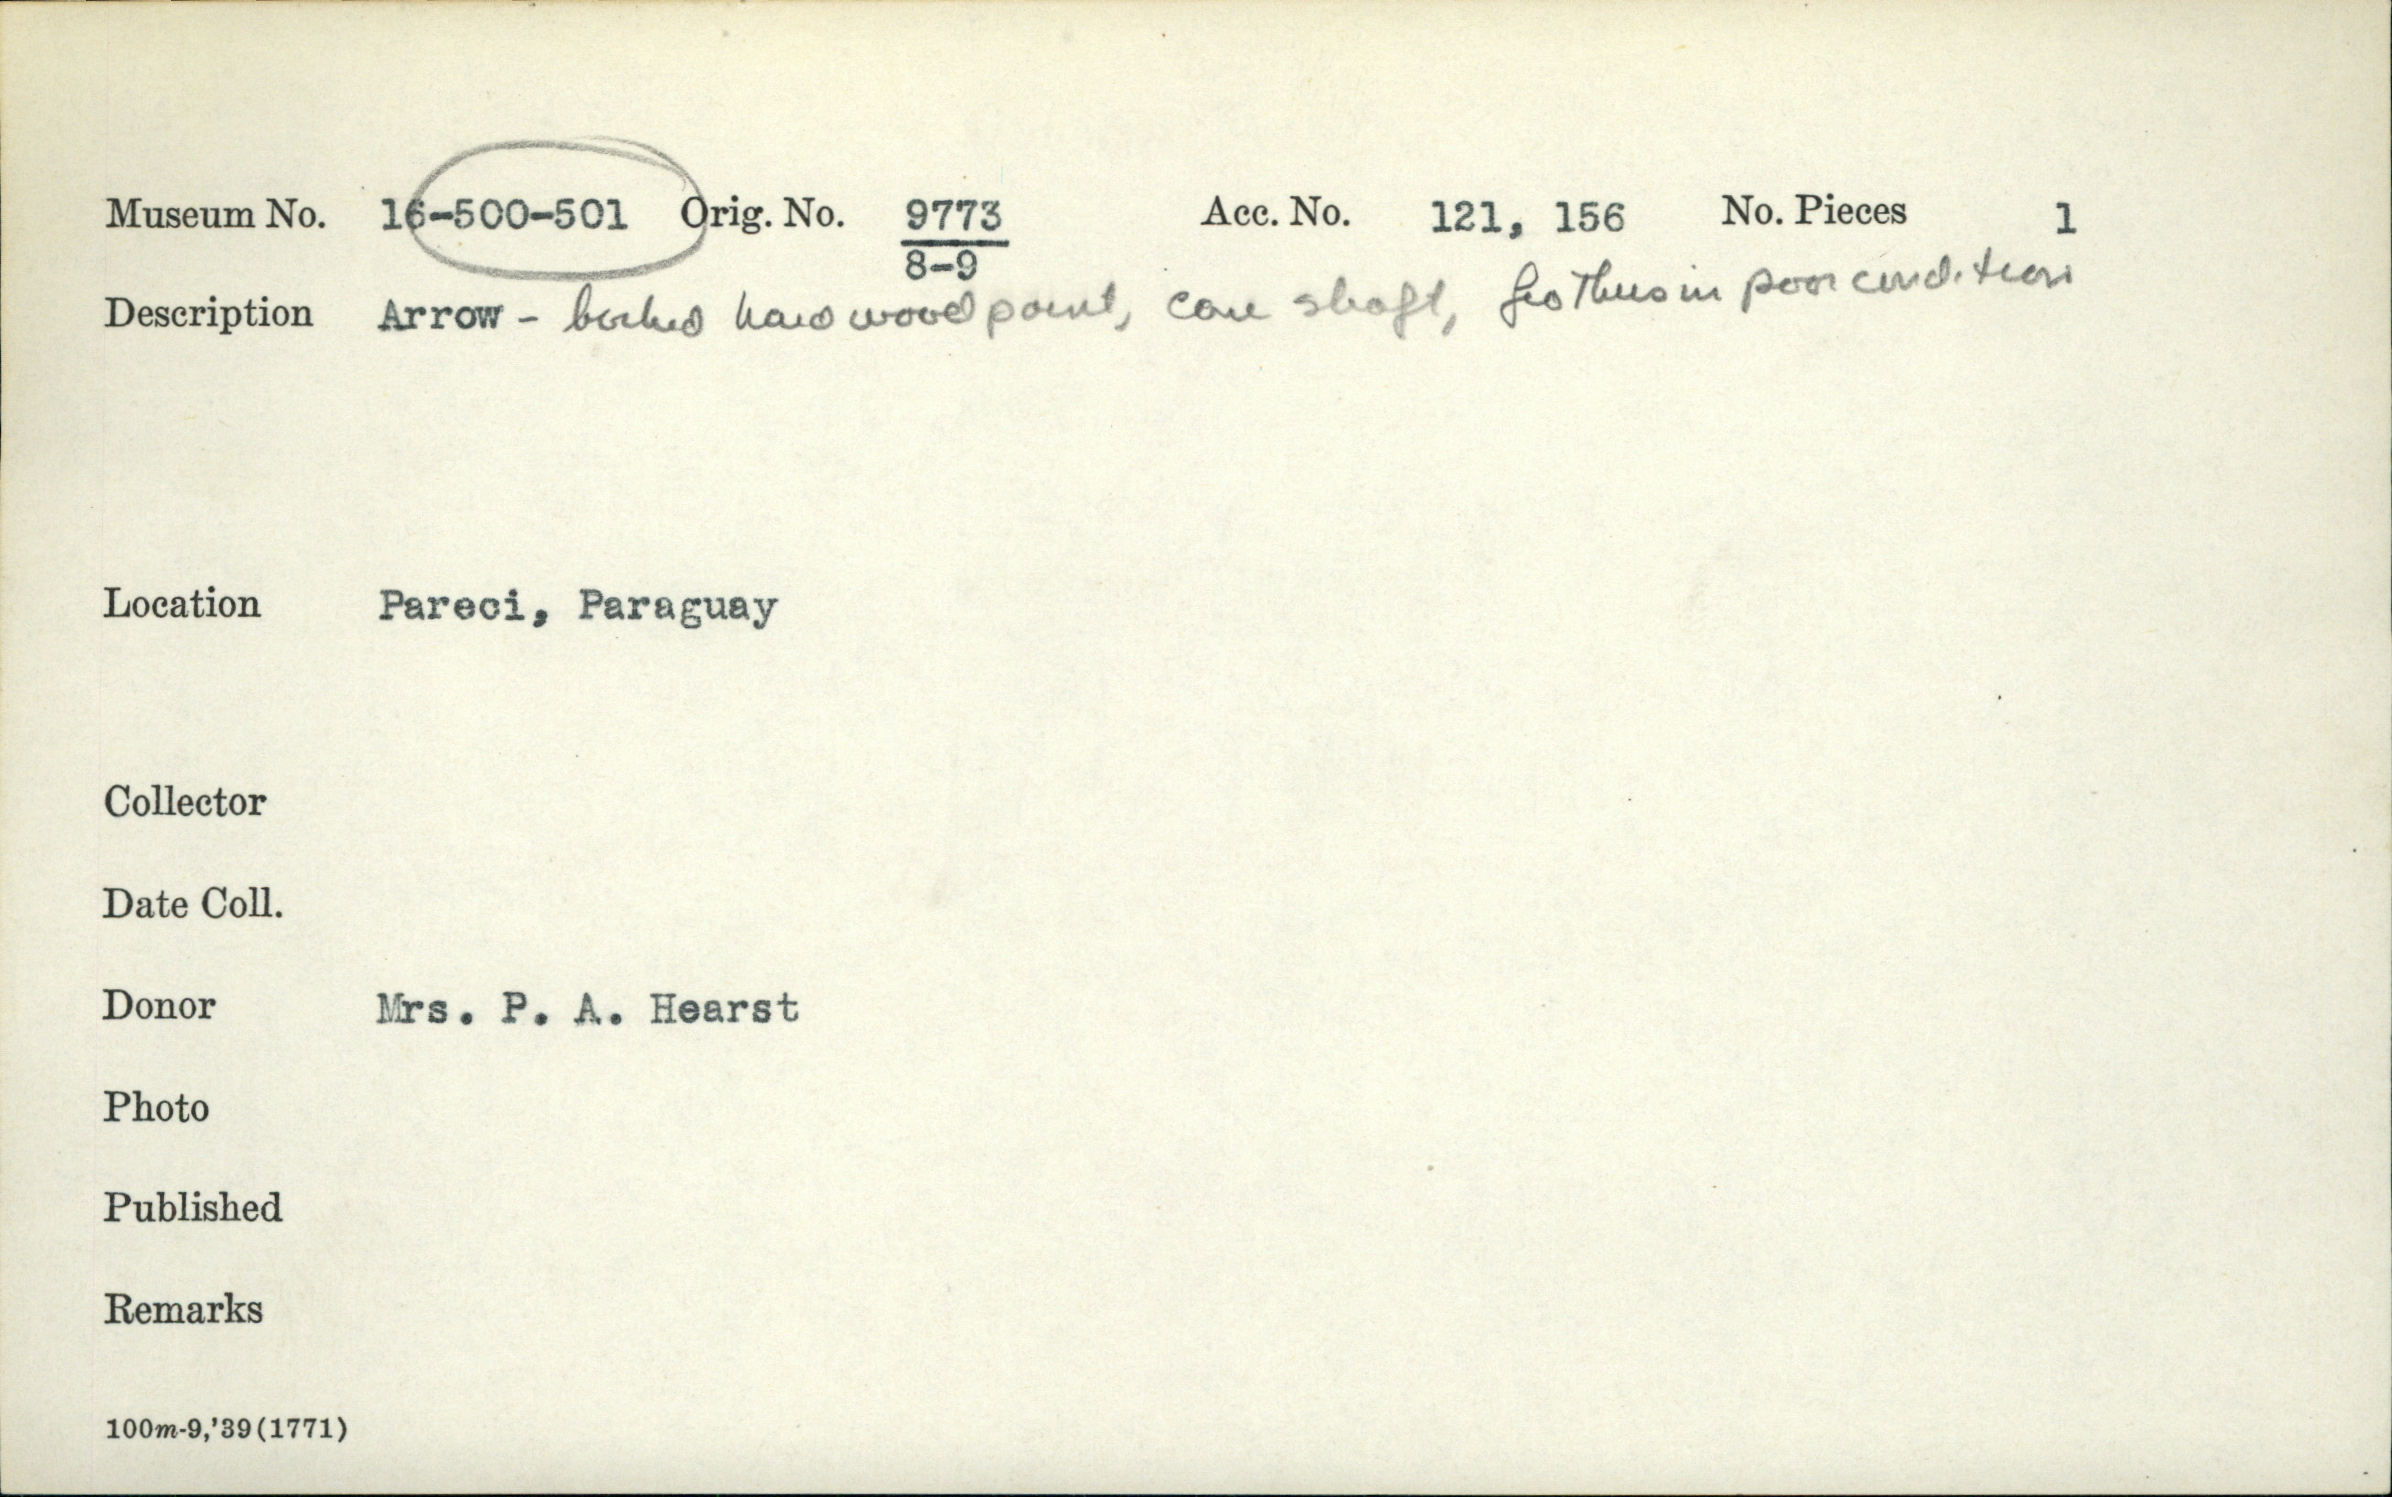 Museum No. 16-500-501 Orig. No. 9773 Acc. No. 121, 156 No. Pieces 1
8-9
Description Arrow - barbed hard wood point, cane shaft, feathers in poor condition
Location Pareci, Paraguay
Collector
Date Coll.
Donor Mrs. P. A. Hearst
Photo
Published
Remarks
100m-9,'39(1771)